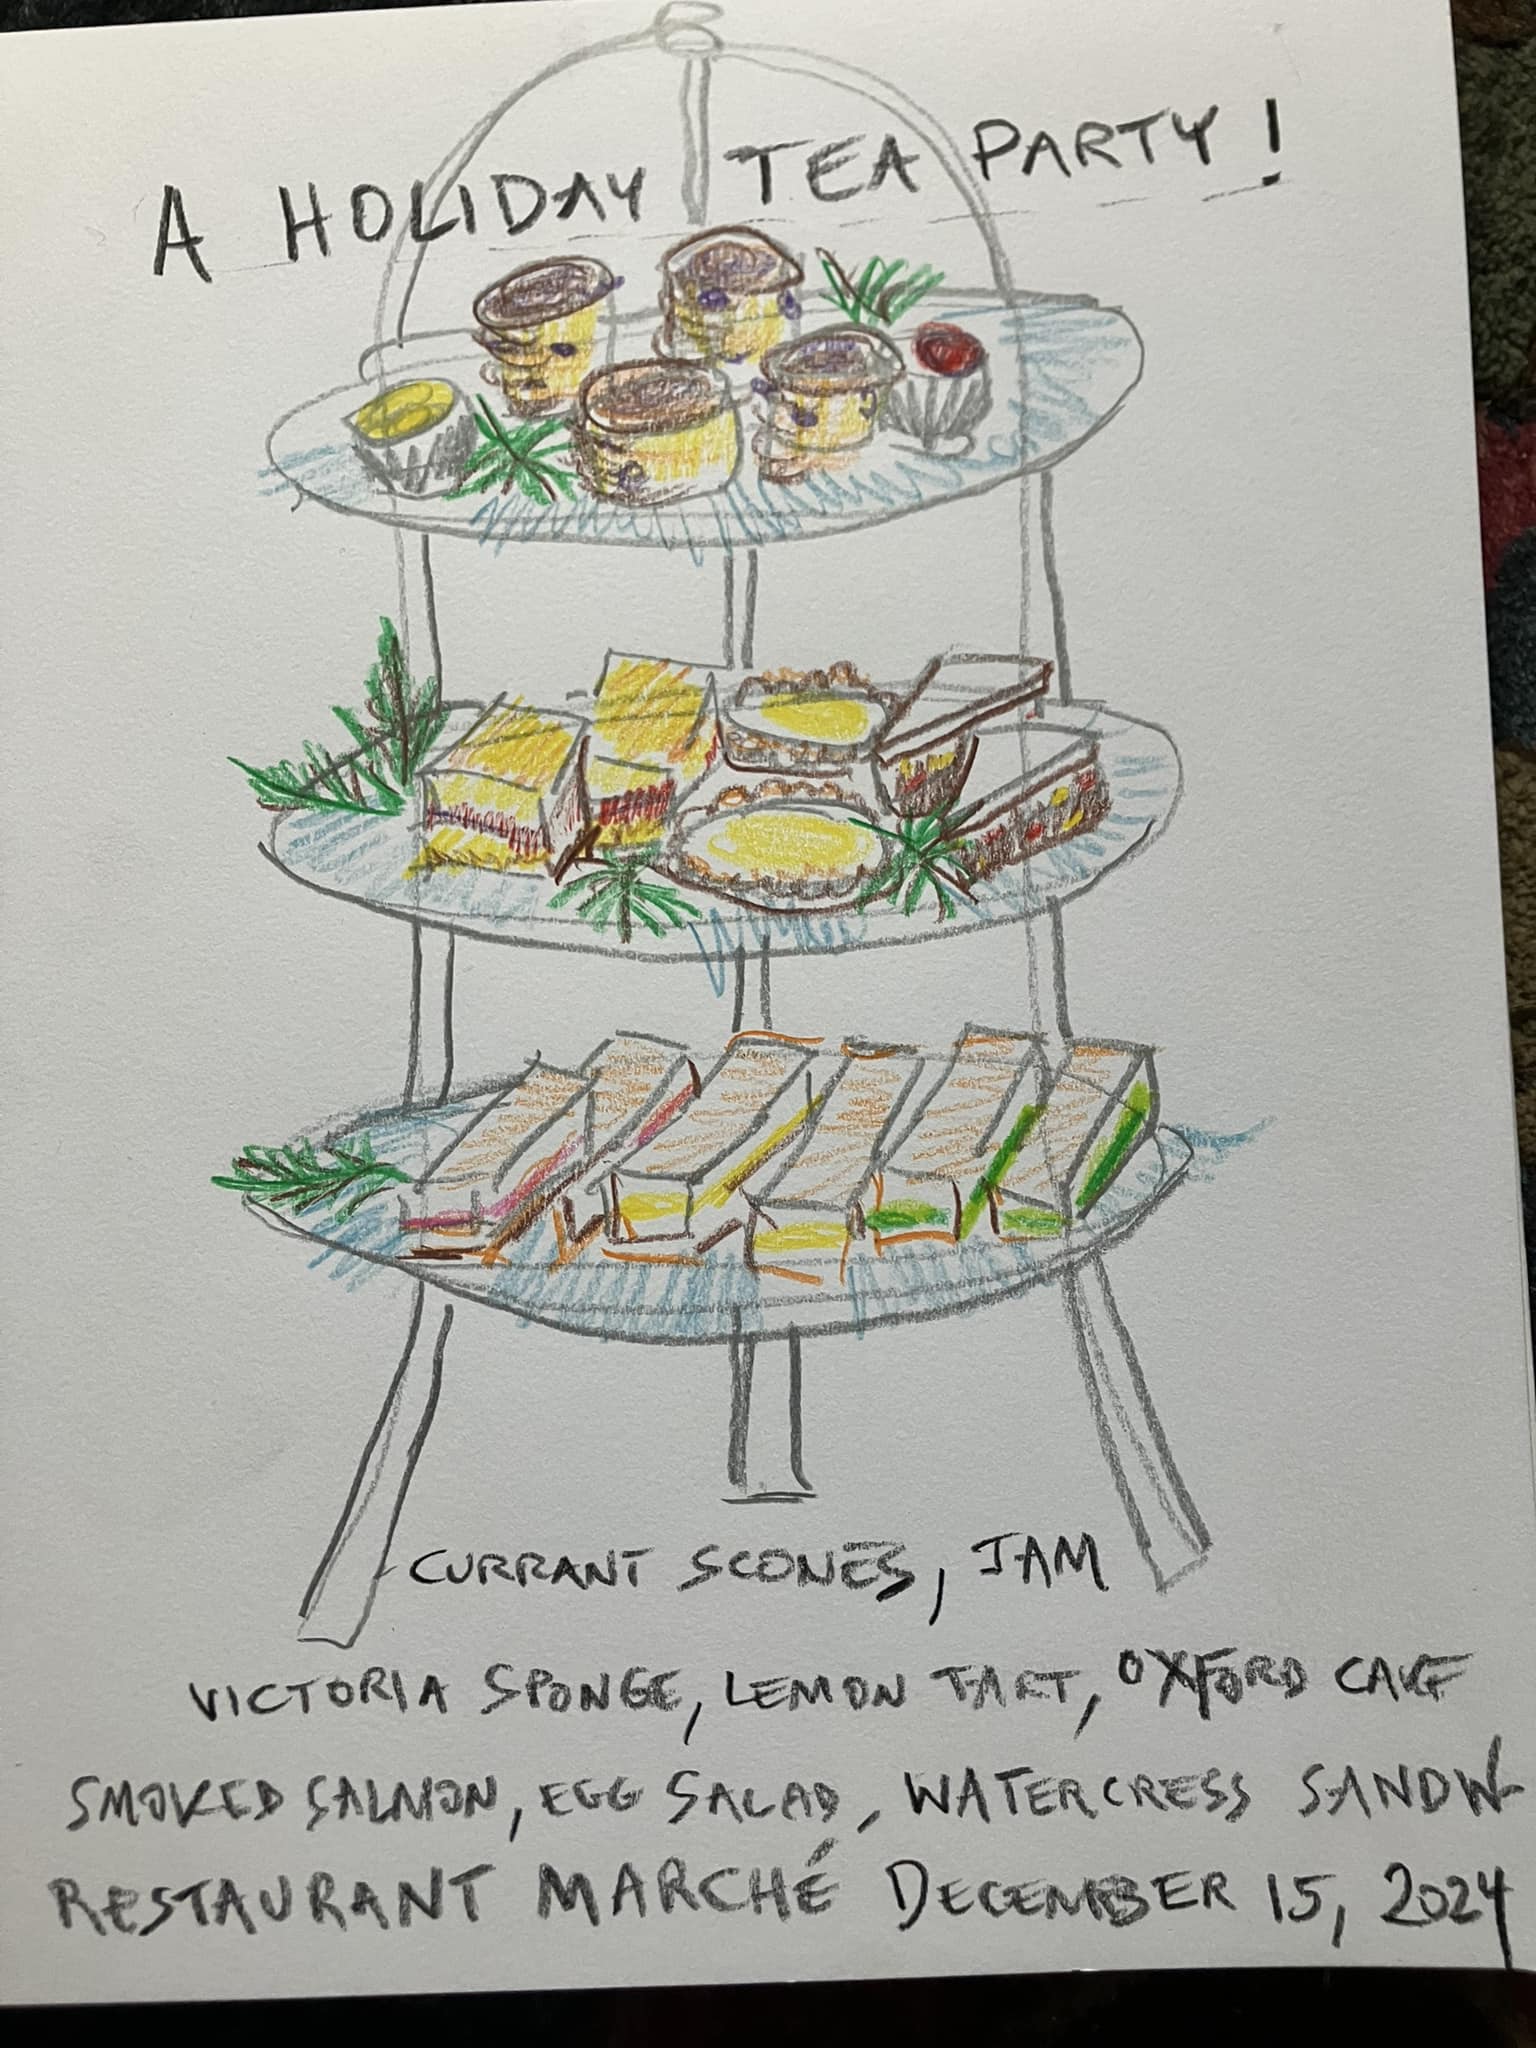 A HOLIDAY TEA PARTY!
CURRANT SCONES, JAM
VICTORIA SPONGE, LEMON TART, OXFORD CAKE
SMOKED SALMON, EGG SALAD, WATERCRESS SANDW
RESTAURANT MARCHÉ DECEMBER 15, 2024